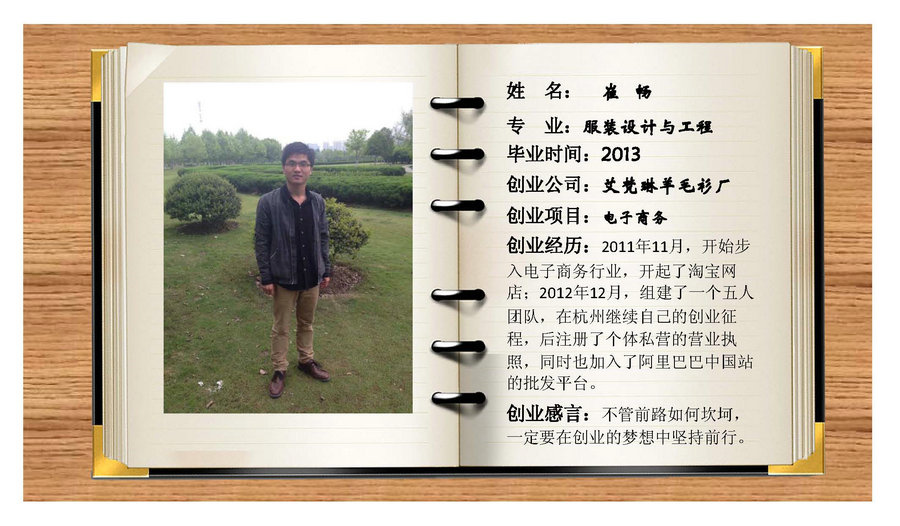 姓 名： 崔 畅
专 业：服装设计与工程
毕业时间：2013
创业公司：艾梵琳羊毛衫厂
创业项目：电子商务
创业经历：2011年11月，开始步
入电子商务行业，开起了淘宝网
店；2012年12月，组建了一个五人
团队，在杭州继续自己的创业征
程，后注册了个体私营的营业执
照，同时也加入了阿里巴巴中国站
的批发平台。
创业感言：不管前路如何坎坷，
一定要在创业的梦想中坚持前行。